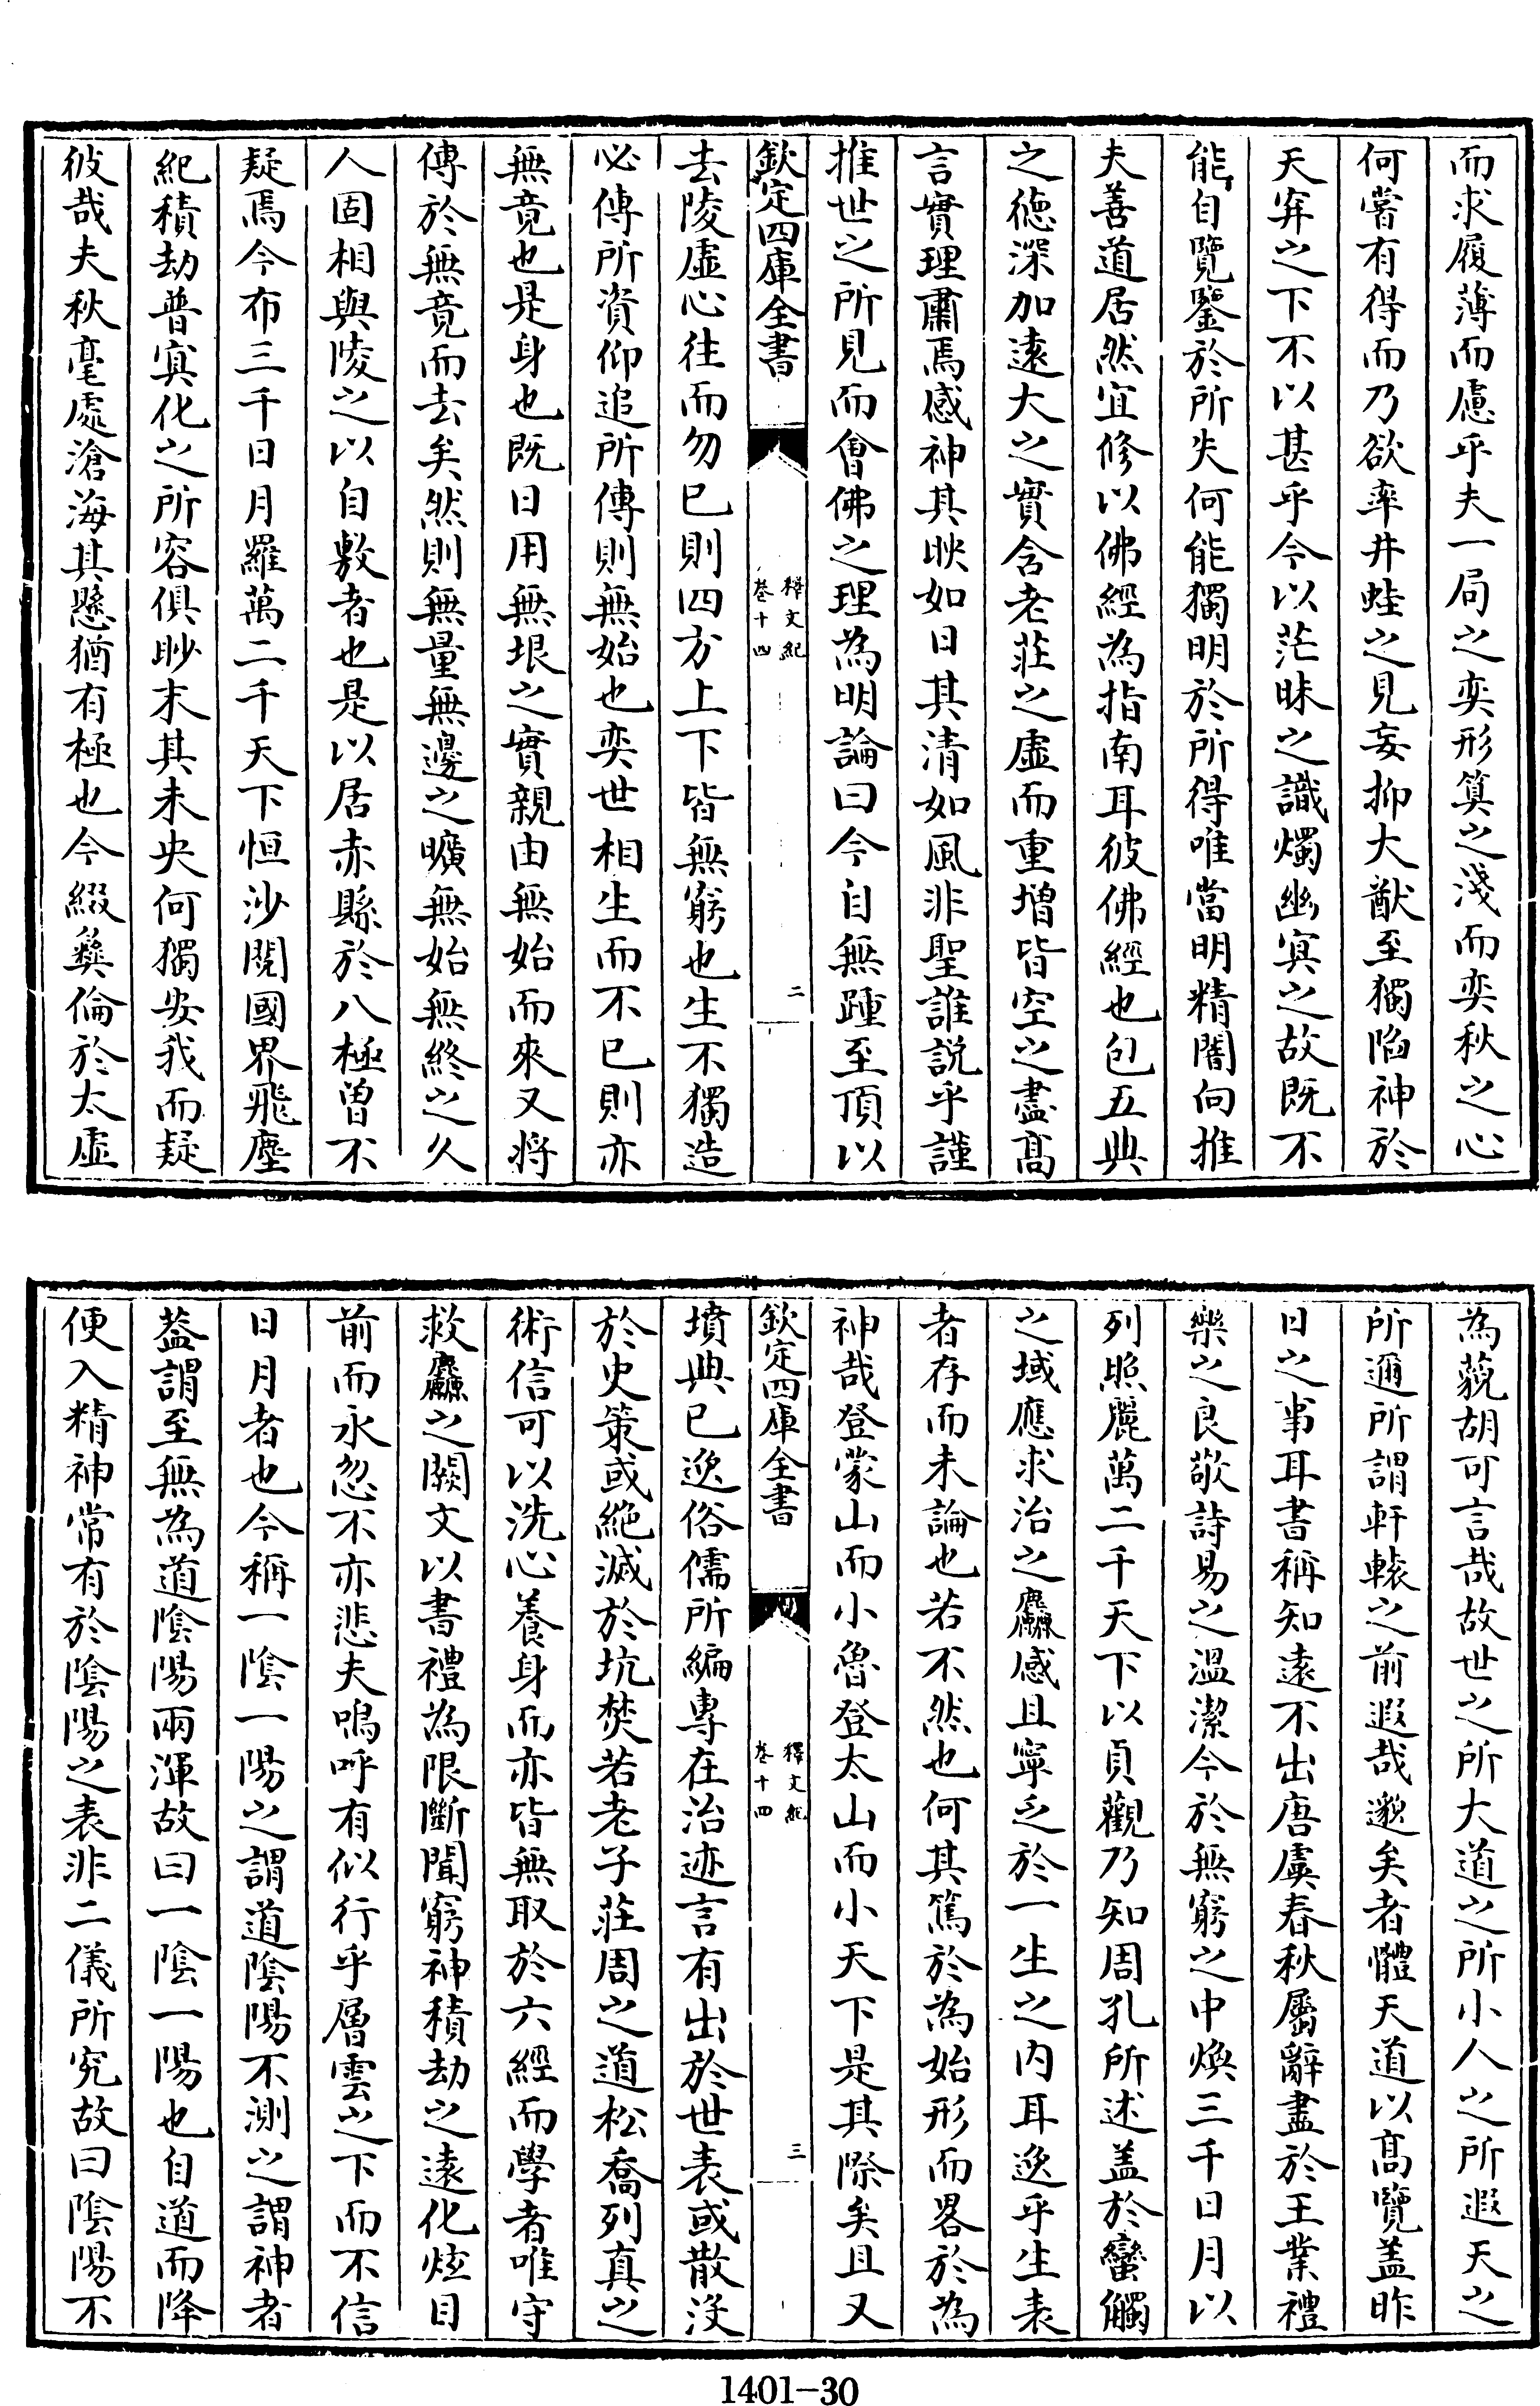 而求履薄而慮乎夫一局之奕形筭之淺而奕秋之心
何嘗有得而乃欲率井蛙之見妄抑大猷至獨陷神於
天穽之下不以甚乎今以茫昧之識燭幽㝠之故既不
能自覽鑒於所失何能獨明於所得唯當明精闇向推
夫善道居然宜修以佛經為指南耳彼佛經也包五典
之徳深加遠大之實含老莊之虛而重増皆空之盡髙
言實理肅焉感神其映如日其清如風非聖誰説乎謹
推世之所見而會佛之理為明論曰今自無踵至頂以
欽定四庫全書
釋文紀
卷十四
二
去陵虛心往而勿已則四方上下皆無窮也生不獨造
必傳所資仰追所傳則無始也奕世相生而不已則亦
無竟也是身也既日用無垠之實親由無始而來又将
傳於無竟而去矣然則無量無邊之曠無始無終之久
人固相與陵之以自敷者也是以居赤縣於八極曽不
疑焉今布三千日月羅萬二千天下恒沙閱國界飛塵
紀積劫普㝠化之所容俱眇末其未央何獨安我而疑
彼哉夫秋毫處滄海其懸猶有極也今綴彝倫於太虛
為藐胡可言哉故世之所大道之所小人之所遐天之
所邇所謂軒轅之前遐哉邈矣者體天道以髙覽盖昨
日之事耳書稱知遠不出唐虞春秋屬辭盡於王業禮
樂之良敬詩易之温潔今於無窮之中煥三千日月以
列照麗萬二千天下以貞觀乃知周孔所述盖於蠻觸
之域應求治之麤感且寧乏於一生之内耳逸乎生表
者存而未論也若不然也何其篤於為始形而畧於為
神哉登蒙山而小魯登太山而小天下是其際矣且又
欽定四庫全書
釋文紀
卷十四
三
墳典已逸俗儒所編專在治迹言有出於世表或散没
於史策或絶滅於坑焚若老子莊周之道松喬列真之
術信可以洗心養身而亦皆無取於六經而學者唯守
救麤之闕文以書禮為限斷聞窮神積劫之遠化炫目
前而永忽不亦悲夫嗚呼有似行乎層雲之下而不信
日月者也今稱一陰一陽之謂道陰陽不測之謂神者
葢謂至無為道陰陽兩渾故曰一陰一陽也自道而降
便入精神常有於陰陽之表非二儀所究故曰陰陽不
1401-30